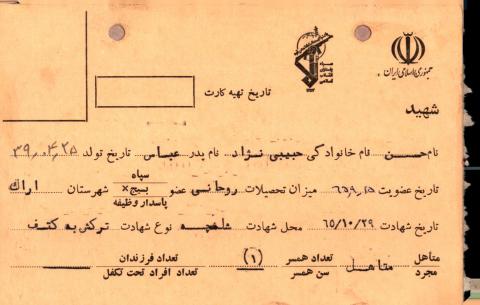 جمهوری اسلامی ایران
تاریخ تهیه کارت
شهید
نام حسن نام خانوادگی حبیبی نژاد نام پدر عباس تاریخ تولد ۳۹،۰۴،۲۵
سپاه
تاریخ عضویت ۶۵۹،۱۵ میزان تحصیلات روحانی عضو بسیج× شهرستان اراک
پاسدار وظیفه
تاریخ شهادت ۶۵/۱۰/۲۹ محل شهادت شلمچه نوع شهادت ترکش به کتف
متأهل متاهل تعداد همسر (۱) تعداد فرزندان
مجرد سن همسر تعداد افراد تحت تکفل